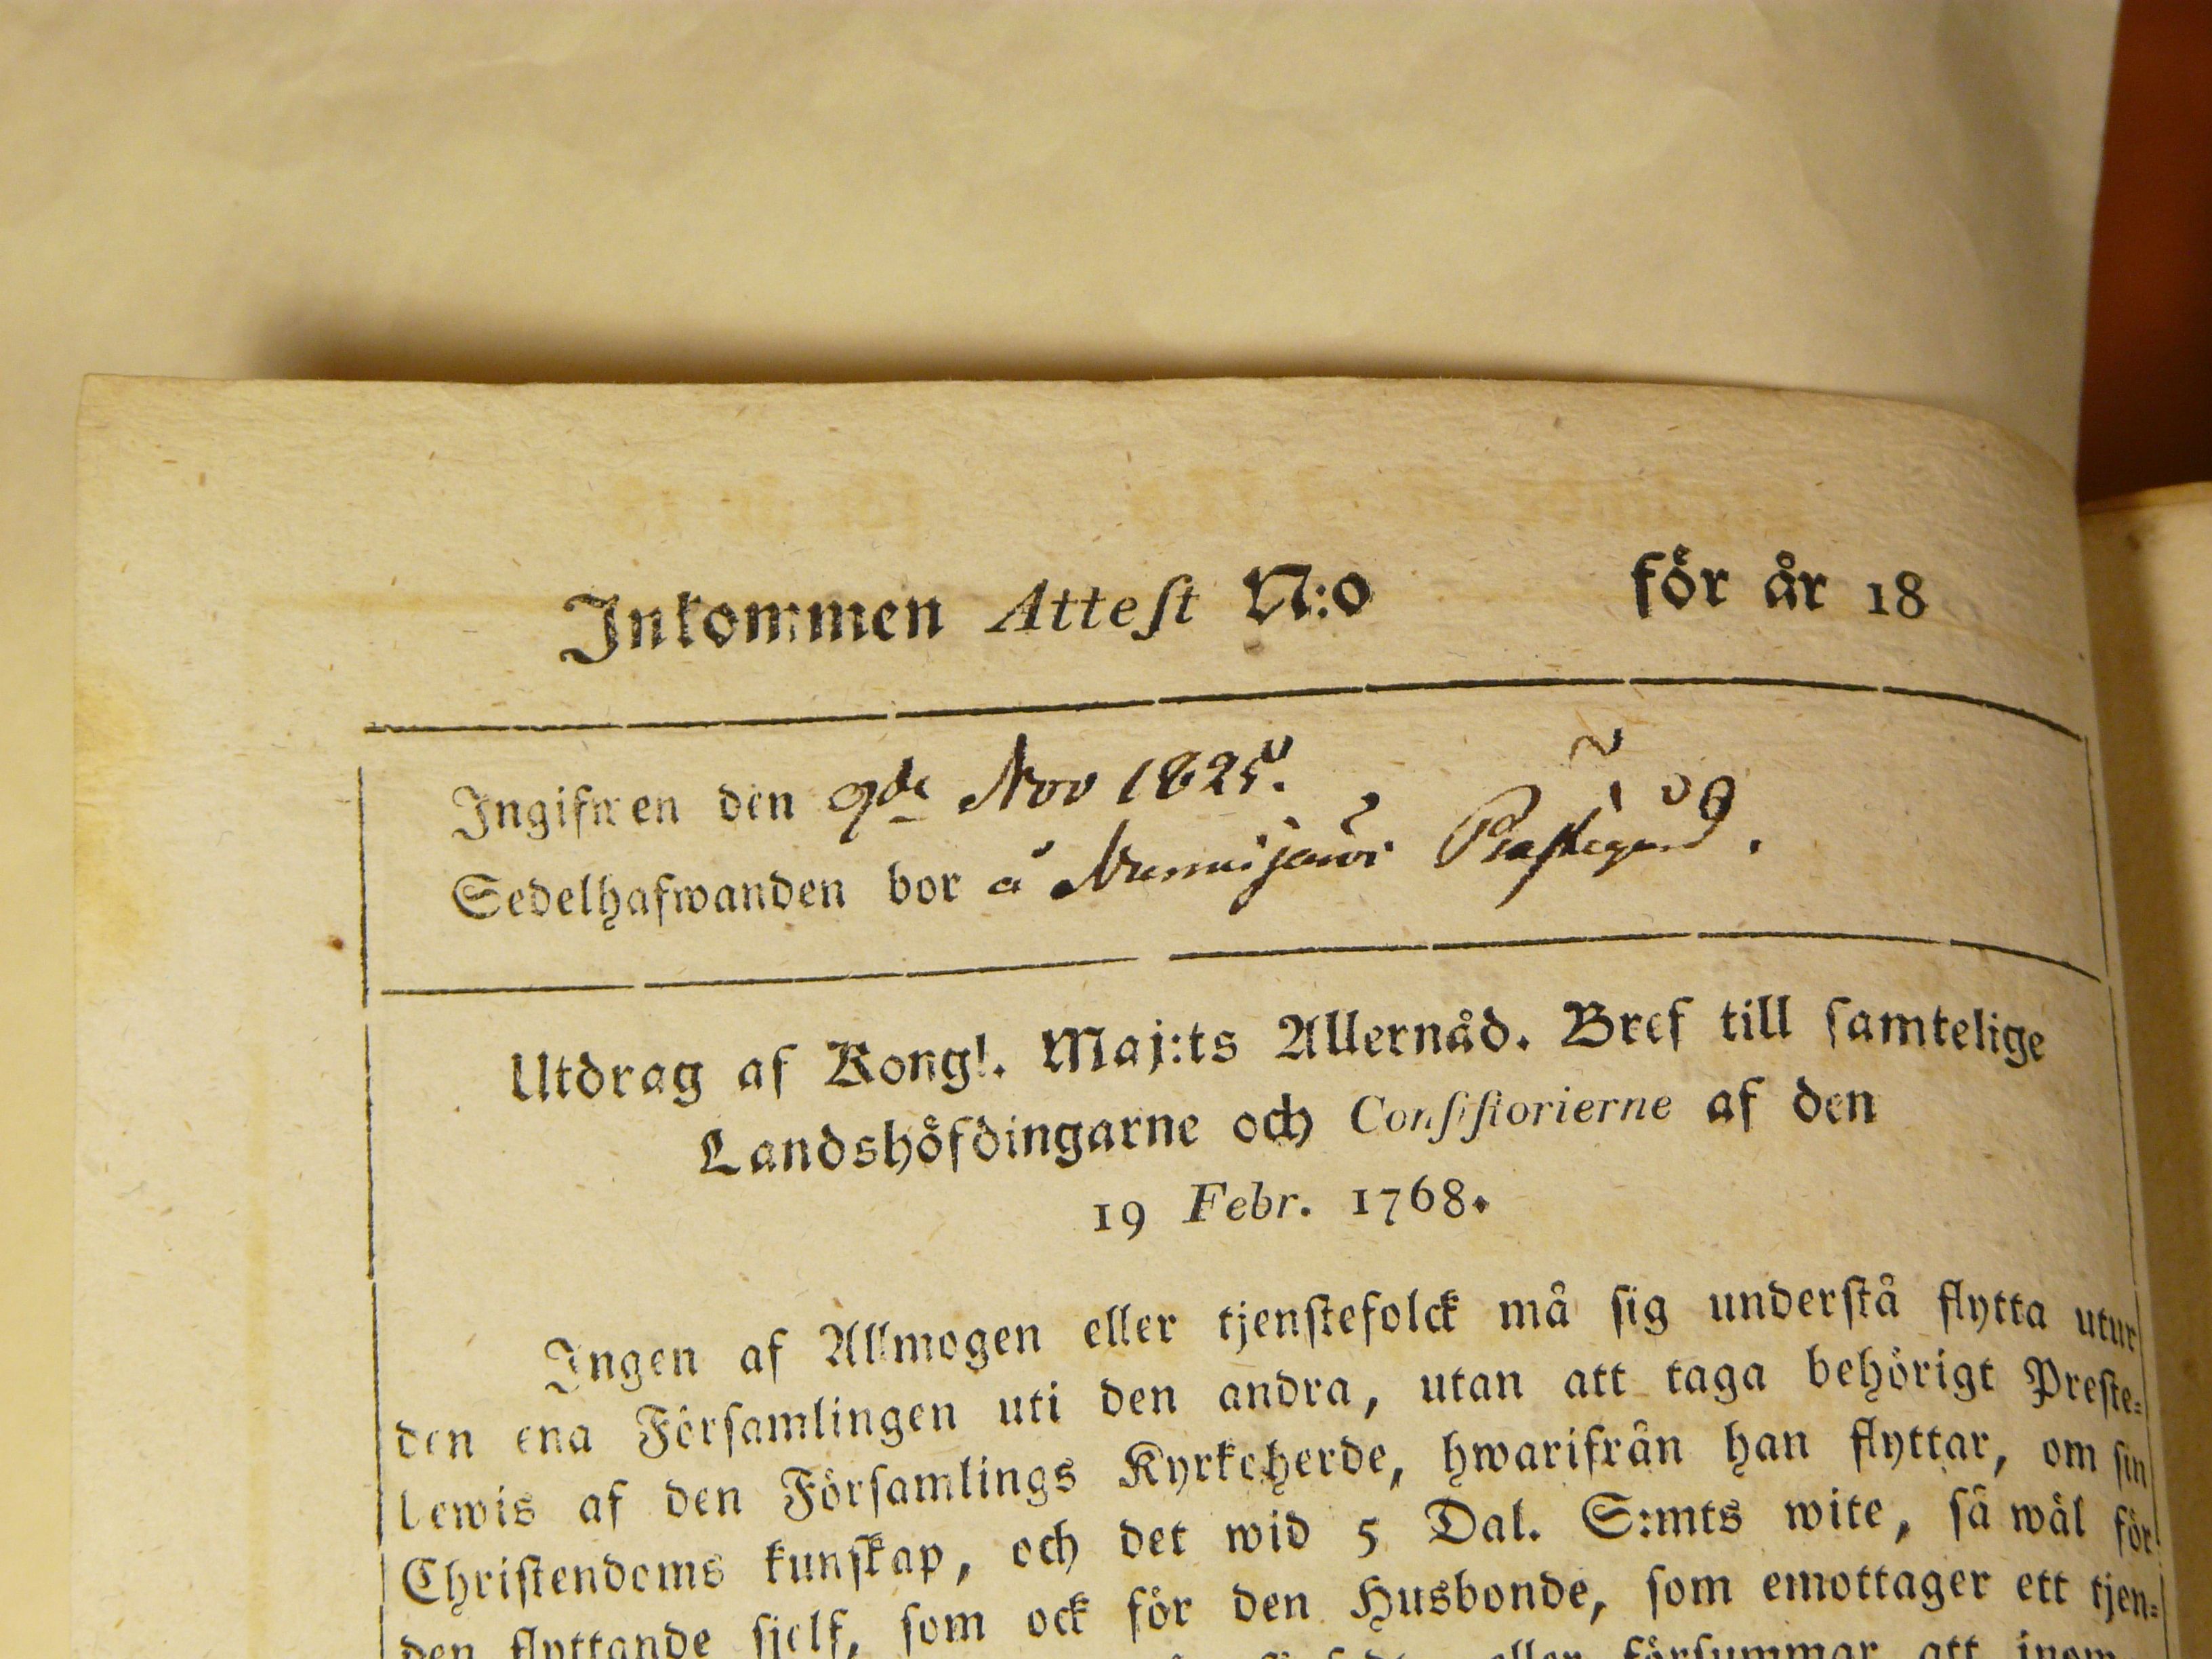 Inkommen Attest N:o för år 18
Ingifwen den 9de Nov 1825.
Sedelhafwanden bor å Nurmijärvi Prästegård.
Utdrag af Kongl. Maj:ts Allernåd. Bref till samtelige
Landshöfdingarne och Consistorierne af den
19 Febr. 1768.
Ingen af Allmogen eller tjenstefolck må sig understå flytta utur
den ena Församlingen uti den andra, utan att taga behörigt Preste-
bewis af den Församlings Kyrkoherde, hwarifrån han flyttar, om sin
Christendoms kunskap, och det wid 5 Dal. S:mts wite, så wäl för
den flyttande sjelf, som ock för den Husbonde, som emottager ett tjen-
eller försummar att inom